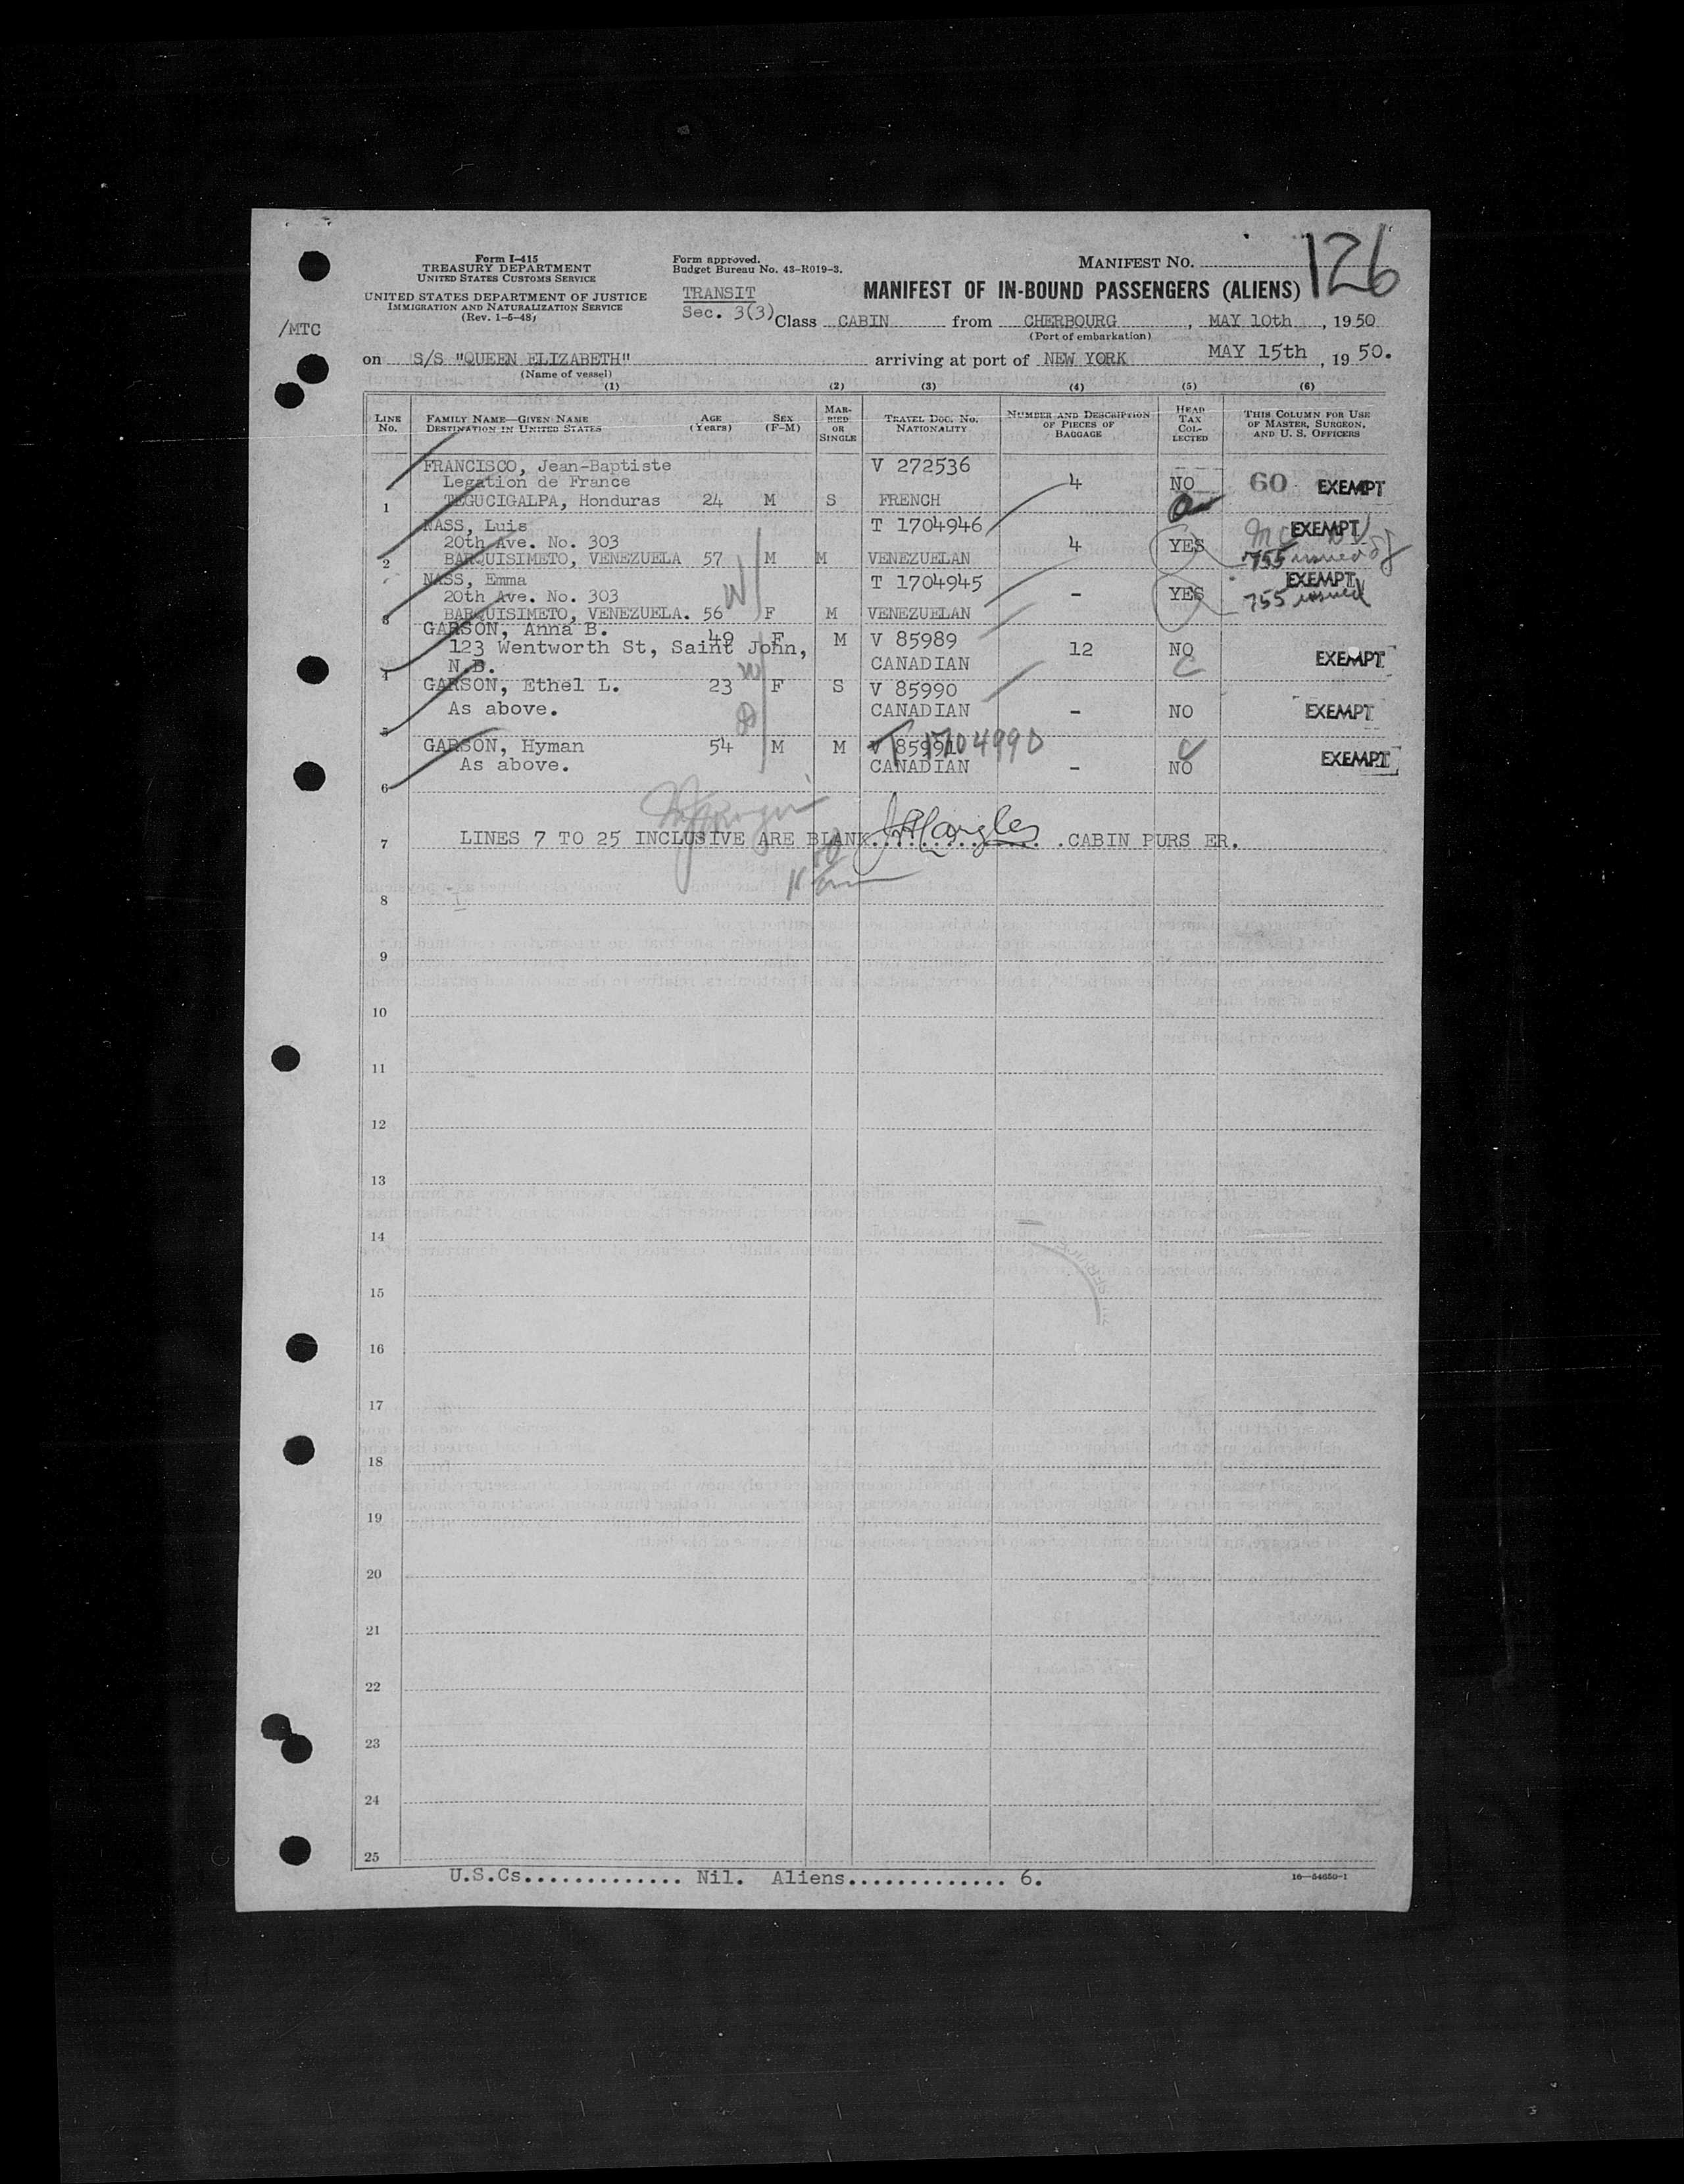 Form I-415
TREASURY DEPARTMENT
UNITED STATES CUSTOMS SERVICE
UNITED STATES DEPARTMENT OF JUSTICE
IMMIGRATION AND NATURALIZATION SERVICE
(Rev. 1-5-48)
/MTC
Form approved.
Budget Bureau No. 43-R019-3.
TRANSIT
Sec. 3(3)
MANIFEST NO. 126
MANIFEST OF IN-BOUND PASSENGERS (ALIENS)
Class CABIN from CHERBOURG, MAY 10th, 1950
(Port of embarkation)
on S/S "QUEEN ELIZABETH" arriving at port of NEW YORK MAY 15th, 19 50.
(Name of vessel)
(1) (2) (3) (4) (5) (6)
LINE No. FAMILY NAME—GIVEN NAME DESTINATION IN UNITED STATES AGE (Years) SEX (F-M) MARRIED OR SINGLE TRAVEL DOC. NO. NATIONALITY NUMBER AND DESCRIPTION OF PIECES OF BAGGAGE HEAD TAX COLLECTED THIS COLUMN FOR USE OF MASTER, SURGEON, AND U. S. OFFICERS
FRANCISCO, Jean-Baptiste V 272536
Legation de France 4 NO 60 EXEMPT
1 TEGUCIGALPA, Honduras 24 M S FRENCH
NASS, Luis T 1704946 EXEMPT
20th Ave. No. 303 4 YES
2 BARQUISIMETO, VENEZUELA 57 M M VENEZUELAN 755 issued
NASS, Emma T 1704945 EXEMPT
20th Ave. No. 303 - YES 755 issued
3 BARQUISIMETO, VENEZUELA. 56 F M VENEZUELAN
GARSON, Anna B. 49 F M V 85989
123 Wentworth St, Saint John, 12 NO
4 N.B. CANADIAN EXEMPT
GARSON, Ethel L. 23 F S V 85990
As above. CANADIAN - NO EXEMPT
5
GARSON, Hyman 54 M M V 85991 T 1704990
As above. CANADIAN - NO EXEMPT
6
7 LINES 7 TO 25 INCLUSIVE ARE BLANK. CABIN PURS ER.
8
9
10
11
12
13
14
15
16
17
18
19
20
21
22
23
24
25
U.S.Cs............. Nil. Aliens............. 6.
16—54650-1